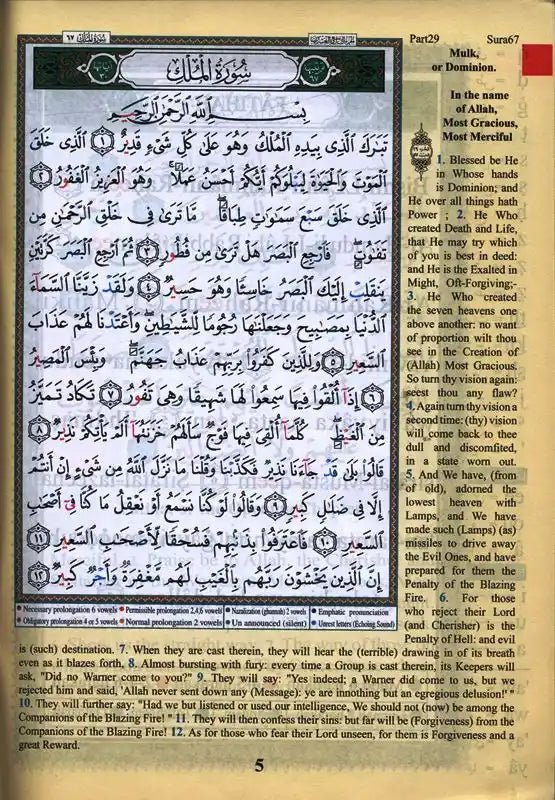 سُورَةُ المُلك ٦٧
Part29 Sura67
سُورَةُ المُلك
بِسْمِ ٱللَّهِ ٱلرَّحْمَٰنِ ٱلرَّحِيمِ
تَبَٰرَكَ ٱلَّذِى بِيَدِهِ ٱلْمُلْكُ وَهُوَ عَلَىٰ كُلِّ شَىْءٍ قَدِيرٌ ١ ٱلَّذِى خَلَقَ
ٱلْمَوْتَ وَٱلْحَيَوٰةَ لِيَبْلُوَكُمْ أَيُّكُمْ أَحْسَنُ عَمَلًا ۚ وَهُوَ ٱلْعَزِيزُ ٱلْغَفُورُ ٢
ٱلَّذِى خَلَقَ سَبْعَ سَمَٰوَٰتٍ طِبَاقًا ۖ مَّا تَرَىٰ فِى خَلْقِ ٱلرَّحْمَٰنِ مِن
تَفَٰوُتٍ ۖ فَٱرْجِعِ ٱلْبَصَرَ هَلْ تَرَىٰ مِن فُطُورٍ ٣ ثُمَّ ٱرْجِعِ ٱلْبَصَرَ كَرَّتَيْنِ
يَنقَلِبْ إِلَيْكَ ٱلْبَصَرُ خَاسِئًا وَهُوَ حَسِيرٌ ٤ وَلَقَدْ زَيَّنَّا ٱلسَّمَآءَ
ٱلدُّنْيَا بِمَصَٰبِيحَ وَجَعَلْنَٰهَا رُجُومًا لِّلشَّيَٰطِينِ ۖ وَأَعْتَدْنَا لَهُمْ عَذَابَ
ٱلسَّعِيرِ ٥ وَلِلَّذِينَ كَفَرُوا۟ بِرَبِّهِمْ عَذَابُ جَهَنَّمَ ۖ وَبِئْسَ ٱلْمَصِيرُ
٦ إِذَآ أُلْقُوا۟ فِيهَا سَمِعُوا۟ لَهَا شَهِيقًا وَهِىَ تَفُورُ ٧ تَكَادُ تَمَيَّزُ
مِنَ ٱلْغَيْظِ ۖ كُلَّمَآ أُلْقِىَ فِيهَا فَوْجٌ سَأَلَهُمْ خَزَنَتُهَآ أَلَمْ يَأْتِكُمْ نَذِيرٌ ٨
قَالُوا۟ بَلَىٰ قَدْ جَآءَنَا نَذِيرٌ فَكَذَّبْنَا وَقُلْنَا مَا نَزَّلَ ٱللَّهُ مِن شَىْءٍ إِنْ أَنتُمْ
إِلَّا فِى ضَلَٰلٍ كَبِيرٍ ٩ وَقَالُوا۟ لَوْ كُنَّا نَسْمَعُ أَوْ نَعْقِلُ مَا كُنَّا فِىٓ أَصْحَٰبِ
ٱلسَّعِيرِ ١٠ فَٱعْتَرَفُوا۟ بِذَنۢبِهِمْ فَسُحْقًا لِّأَصْحَٰبِ ٱلسَّعِيرِ ١١
إِنَّ ٱلَّذِينَ يَخْشَوْنَ رَبَّهُم بِٱلْغَيْبِ لَهُم مَّغْفِرَةٌ وَأَجْرٌ كَبِيرٌ ١٢
Necessary prolongation 6 vowels Permissible prolongation 2,4,6 vowels Nazalization (ghunnah) 2 vowels Emphatic pronunciation
Obligatory prolongation 4 or 5 vowels Normal prolongation 2 vowels Un announced (silent) Unrest letters (Echoing Sound)
Mulk,
or Dominion.
In the name
of Allah,
Most Gracious,
Most Merciful
1. Blessed be He
in Whose hands
is Dominion; and
He over all things hath
Power ; 2. He Who
created Death and Life,
that He may try which
of you is best in deed:
and He is the Exalted in
Might, Oft-Forgiving;-
3. He Who created
the seven heavens one
above another: no want
of proportion wilt thou
see in the Creation of
(Allah) Most Gracious.
So turn thy vision again:
seest thou any flaw?
4. Again turn thy vision a
second time: (thy) vision
will come back to thee
dull and discomfited,
in a state worn out.
5. And We have, (from
of old), adorned the
lowest heaven with
Lamps, and We have
made such (Lamps) (as)
missiles to drive away
the Evil Ones, and have
prepared for them the
Penalty of the Blazing
Fire. 6. For those
who reject their Lord
(and Cherisher) is the
Penalty of Hell: and evil
is (such) destination. 7. When they are cast therein, they will hear the (terrible) drawing in of its breath
even as it blazes forth, 8. Almost bursting with fury: every time a Group is cast therein, its Keepers will
ask, "Did no Warner come to you?" 9. They will say: "Yes indeed; a Warner did come to us, but we
rejected him and said, 'Allah never sent down any (Message): ye are innothing but an egregious delusion!' "
10. They will further say: "Had we but listened or used our intelligence, We should not (now) be among the
Companions of the Blazing Fire! " 11. They will then confess their sins: but far will be (Forgiveness) from the
Companions of the Blazing Fire! 12. As for those who fear their Lord unseen, for them is Forgiveness and a
great Reward.
5